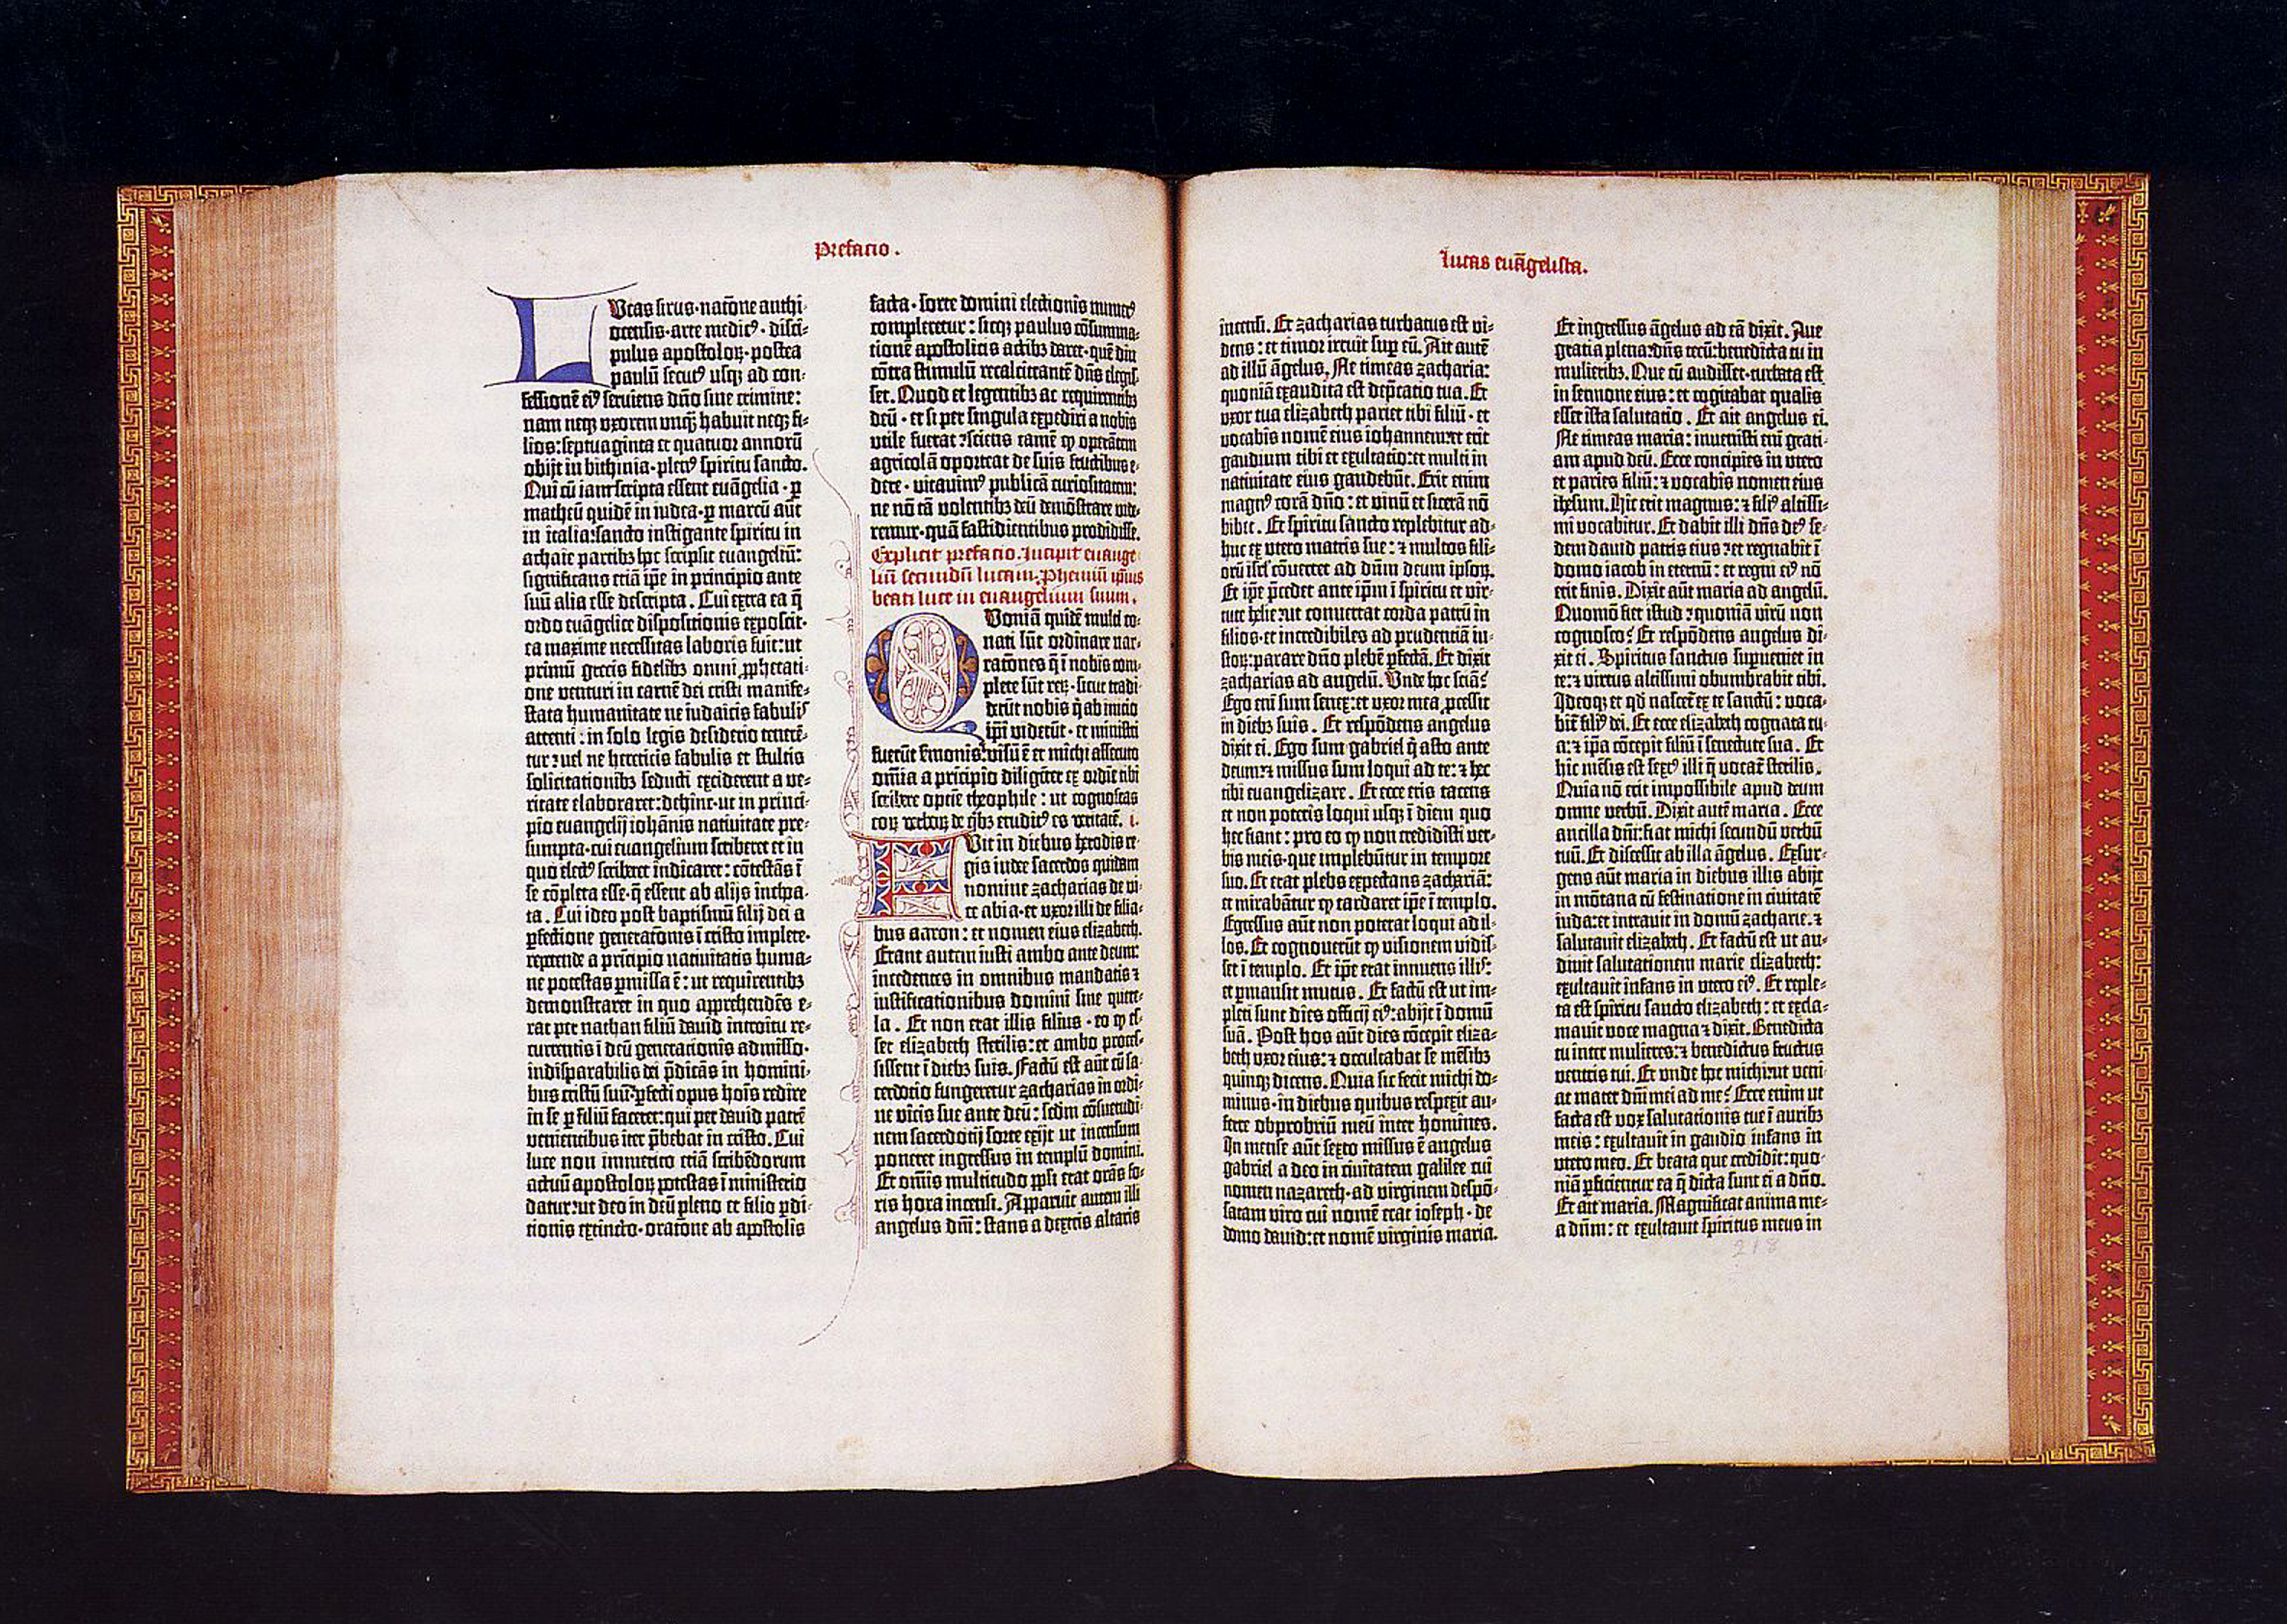 Prefacio.
Lucas sirus·natōne anthi-
ocensis·arte medicꝰ·disci-
pulus apostoloꝝ·postea
paulū secutꝰ usqꝫ ad con-
fessionē eiꝰ seruiens dn̄o sine crimine:
nam neqꝫ vxorem vnqꝫ habuit neqꝫ fi-
lios: septuaginta et quatuor annorū
obijt in bithinia·plenꝰ spiritu sancto.
Qui cū iam scripta essent euāgelia·ꝑ
matheū quidē in iudea·ꝑ marcū aūt
in italia: sancto instigante spiritu in
achaie partibꝫ hoc scripsit euangeliū:
significans etiā ip̄e in principio ante
suū alia esse descripta. Cui extra ea q̄
ordo euāgelice dispositionis exposcit·
ea maxime necessitas laboris fuit: ut
primū grecis fidelibꝫ omni ꝓphetati-
one venturi in carnē dei cristi manife-
stata humanitate ne iudaicis fabulis
attenti: in solo legis desiderio tenerē-
tur: uel ne hereticis fabulis et stultis
solicitationibꝫ seducti exciderent a ve-
ritate elaboraret: dehinc·ut in princi-
pio euangelij iohānis natiuitate pre-
sumpta·cui euangelium scriberet et in
quo electꝰ scriberet indicaret: cōtestās ī
se cōpleta esse·q̄ essent ab alijs inchoa-
ta. Cui ideo post baptismū filij dei a
ꝑfectione generatōnis ī cristo implete·
repetende a pricipio natiuitatis huma-
ne potestas ꝑmissa ē: ut requirentibꝫ
demonstraret in quo apprehendēs e-
rat per nathan filiū dauid introitu re-
currentis ī deū generacionis admisso·
indisparabilis dei p̄dicās in homini-
bus cristū suū: ꝑfecti opus hoīs redire
in se ꝑ filiū faceret: qui per dauid patrē
venientibus iter p̄bebat in cristo. Cui
luce non immerito etiā scribēdorum
actuū apostoloꝝ potestas ī ministerio
datur: ut deo in deū pleno et filio ꝑdi-
tionis extincto·oratōne ab apostolis
facta·sorte domini electionis numerꝰ
compleretur: sicqꝫ paulus cōsumma-
tionē apostolicis actibꝫ daret·quē diu
cōtra stimulū recalcitrantē dn̄s elegis-
set. Quod et legentibꝫ ac requirentibꝫ
deū·et si per singula expediri a nobis
vtile fuerat: sciens tamē ꝙ operātem
agricolā oporteat de suis fructibus e-
dere·vitauimꝰ publicā curiositatem:
ne nō tā volentibꝫ deū demōstrare vide-
remur·quā fastidientibus prodidisse.
Explicit prefacio. Incipit euange-
liū secundū lucam. Phemiū ip̄ius
beati luce in euangelium suum.
Quoniā quidē multi co-
nati sūt ordinare nar-
ratōnes q̄ ī nobis com-
plete sūt reꝝ·sicut tradi-
derūt nobis q̄ ab inicio
ip̄i viderūt·et ministri
fuerūt s̄monis: visū ē et michi assecuto
om̄ia a pricipio diligēter ex ordīe tibi
scribere optīe theophile: ut cognoscas
eoꝝ verboꝝ de qͥbꝫ eruditꝰ es veritatē. i.
Fuit in diebus herodis re-
gis iudee sacerdos quidam
nomine zacharias de vi-
ce abia·et vxor illi de filia-
bus aaron: et nomen eius elizabeth.
Erant autem iusti ambo ante deum:
incedentes in omnibus mandatis ⁊
iustificationibus domini sine quere-
la. Et non erat illis filius·eo ꝙ es-
set elizabeth sterilis: et ambo proces-
sissent ī diebꝫ suis. Factū est aūt cū sa-
cerdotio fungeretur zacharias in ordi-
ne vicis sue ante deū: scdm cōsuetudi-
nem sacerdotij sorte exijt ut incensum
poneret ingressus in templū domini.
Et om̄is multitudo ppl̄i erat orās fo-
ris hora incensi. Apparuit autem illi
angelus dn̄i: stans a dextris altaris
Lucas euāgelista.
incensi. Et zacharias turbatus est vi-
dens: et timor irruit suꝑ eū. Ait autē
ad illū āgelus. Ne timeas zacharia:
quoniā exaudita est dep̄catio tua. Et
vxor tua elizabeth pariet tibi filiū·et
vocabis nomē eius iohannem: et erit
gaudium tibi et exultatio: et multi in
natiuitate eius gaudebūt. Erit enim
magnꝰ corā dn̄o: et vinū et sicerā nō
bibet. Et spiritu sancto replebitur ad-
huc ex vtero matris sue: ⁊ multos fili-
orū isrl̄ cōuertet ad dn̄m deum ipsoꝝ.
Et ip̄e p̄cedet ante ip̄m ī spiritu et vir-
tute helie: ut conuertat corda patrū in
filios·et incredibiles ad prudentiā iu-
stoꝝ: parare dn̄o plebē ꝑfectā. Et dixit
zacharias ad angelū. Vnde hoc sciā?
Ego em̄ sum senex: et vxor mea ꝓcessit
in diebꝫ suis. Et respōdens angelus
dixit ei. Ego sum gabriel q̄ asto ante
deum: ⁊ missus sum loqui ad te: ⁊ hec
tibi euangelizare. Et ecce eris tacens
et non poteris loqui usqꝫ ī diem quo
hec fiant: pro eo ꝙ non credidisti ver-
bis meis·que implebūtur in tempore
suo. Et erat plebs expectans zachariā:
et mirabātur ꝙ tardaret ip̄e ī templo.
Egressus aūt non poterat loqui ad il-
los. Et cognouerūt ꝙ visionem vidis-
set ī templo. Et ip̄e erat innuens illis:
et ꝑmansit mutus. Et factū est ut im-
pleti sunt dies officij eiꝰ: abijt ī domū
suā. Post hos aūt dies cōcepit eliza-
beth vxor eius: ⁊ occultabat se mēsibꝫ
quinqꝫ dicens. Quia sic fecit michi do-
minus·in diebus quibus respexit au-
ferre obprobriū meū inter homines.
In mense aūt sexto missus ē angelus
gabriel a deo in ciuitatem galilee cui
nomen nazareth·ad virginem despō-
satam viro cui nomē erat ioseph·de
domo dauid: et nomē virginis maria.
Et ingressus āgelus ad eā dixit. Aue
gratia plena: dn̄s tecū: benedicta tu in
mulieribꝫ. Que cū audisset·turbata est
in sermone eius: et cogitabat qualis
esset ista salutatio. Et ait angelus ei.
Ne timeas maria: inuenisti em̄ grati-
am apud deū. Ecce concipies in vtero
et paries filiū: ⁊ vocabis nomen eius
ihesum. Hic erit magnus: ⁊ filiꝰ altissi-
mi vocabitur. Et dabit illi dn̄s deꝰ se-
dem dauid patris eius: et regnabit ī
domo iacob in eternū: et regni eiꝰ nō
erit finis. Dixit aūt maria ad angelū.
Quomō fiet istud: quoniā virū non
cognosco? Et respōdens angelus di-
xit ei. Spiritus sanctus suꝑueniet in
te: ⁊ virtus altissimi obumbrabit tibi.
Ideoqꝫ et qd̄ nascet̄ ex te sanctū: voca-
bit̄ filiꝰ dei. Et ecce elizabeth cognata tu-
a: ⁊ ip̄a cōcepit filiū ī senectute sua. Et
hic mēsis est sextꝰ illi q̄ vocat̄ sterilis.
Quia nō erit impossibile apud deum
omne verbū. Dixit autē maria. Ecce
ancilla dn̄i: fiat michi secundū verbū
tuū. Et discessit ab illa āgelus. Exsur-
gens aūt maria in diebus illis abijt
in mōtana cū festinatione in ciuitatē
iuda: et intrauit in domū zacharie. ⁊
salutauit elizabeth. Et factū est ut au-
diuit salutationem marie elizabeth:
exultauit infans in vtero eiꝰ. Et reple-
ta est spiritu sancto elizabeth: et excla-
mauit voce magna ⁊ dixit. Benedicta
tu inter mulieres: ⁊ benedictus fructus
ventris tui. Et vnde hoc michi: ut veni-
at mater dn̄i mei ad me? Ecce enim ut
facta est vox salutationis tue ī auribꝫ
meis: exultauit in gaudio infans in
vtero meo. Et beata que credidit: quo-
niā ꝑficientur ea q̄ dicta sunt ei a dn̄o.
Et ait maria. Magnificat anima me-
a dn̄m: et exultauit spiritus meus in
218